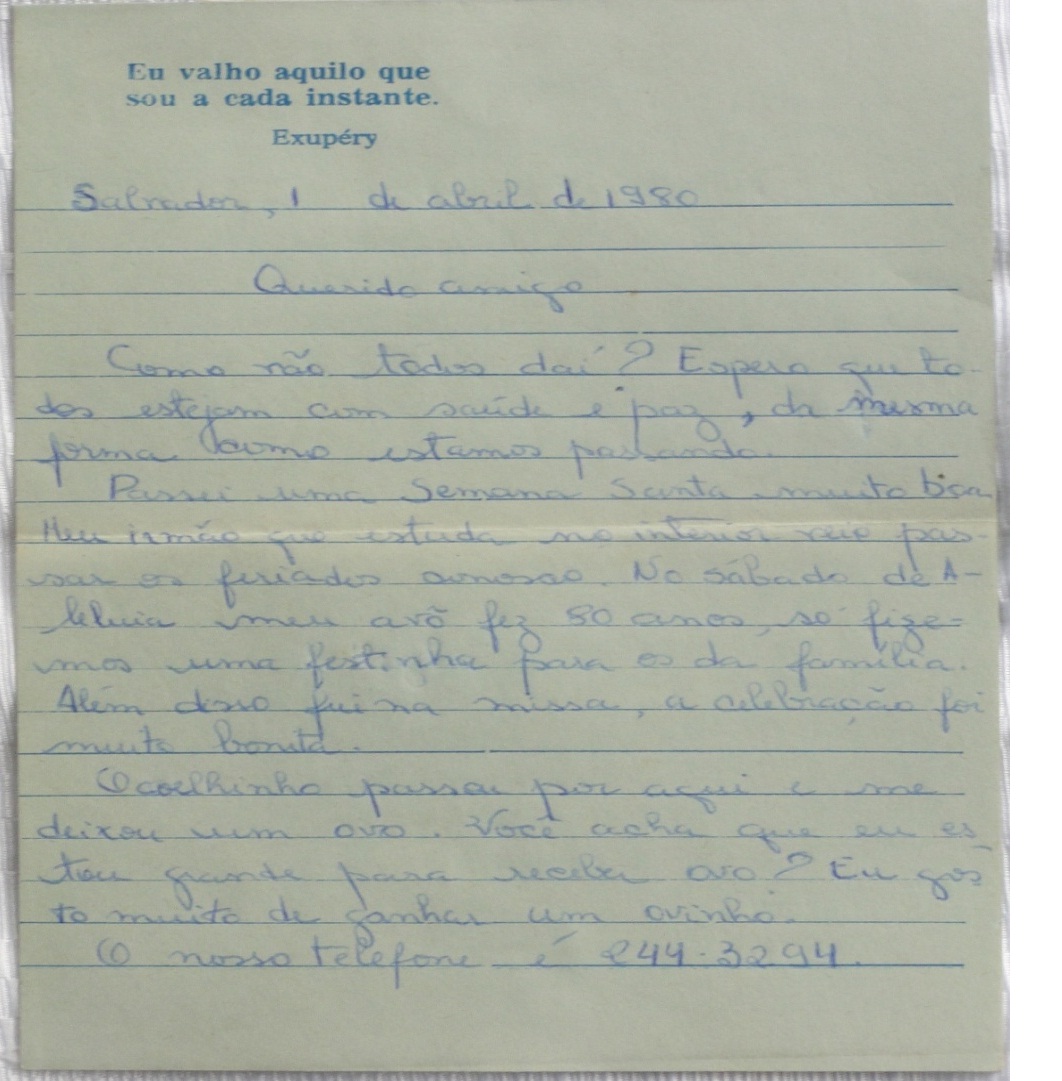 Eu valho aquilo que
sou a cada instante.
Exupéry
Salvador, 1 de abril de 1980
Querido amigo
Como vão todos daí? Espero que to-
dos estejam com saúde e paz, da mesma
forma como estamos passando.
Passei uma Semana Santa muito boa
Meu irmão que estuda no interior veio pas-
sar os feriados conosco. No sábado de A-
leluia meu avô fez 80 anos, só fize-
mos uma festinha para os da família.
Além disso fui na missa, a celebração foi
muito bonita.
O coelhinho passou por aqui e me
deixou um ovo. Você acha que eu es
tou grande para receber ovo? Eu gos
to muito de ganhar um ovinho.
O nosso telefone é 244-3294.